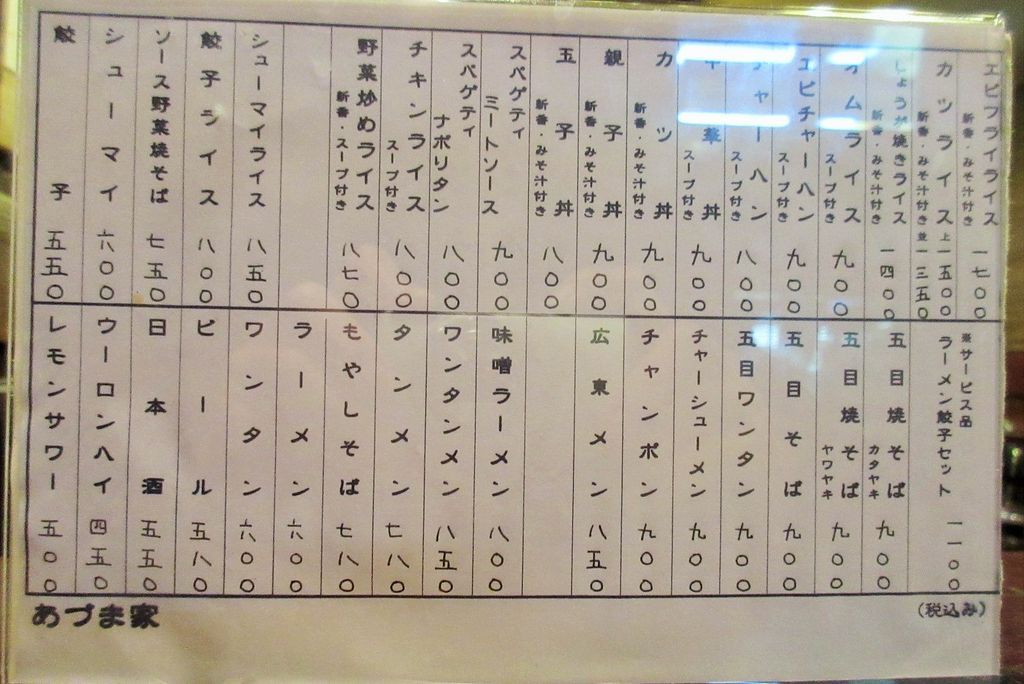 エビフライライス 新香・みそ汁付き 一七〇〇
カツライス 新香・みそ汁付き 上一五〇〇 並一三五〇
しょうが焼きライス 新香・みそ汁付き 一四〇〇
オムライス スープ付き 九〇〇
エビチャーハン スープ付き 九〇〇
チャーハン スープ付き 八〇〇
中華丼 スープ付き 九〇〇
カツ丼 新香・みそ汁付き 九〇〇
親子丼 新香・みそ汁付き 九〇〇
玉子丼 新香・みそ汁付き 八〇〇
スパゲティ ミートソース 九〇〇
スパゲティ ナポリタン 八〇〇
チキンライス スープ付き 八〇〇
野菜炒めライス 新香・スープ付き 八七〇
シューマイライス 八五〇
餃子ライス 八〇〇
ソース野菜焼そば 七五〇
シューマイ 六〇〇
餃子 五五〇
※サービス品
ラーメン餃子セット 一一〇〇
五目焼そば カタヤキ 九〇〇
五目焼そば ヤワヤキ 九〇〇
五目そば 九〇〇
五目ワンタン 九〇〇
チャーシューメン 九〇〇
チャンポン 九〇〇
広東メン 八五〇
味噌ラーメン 八〇〇
ワンタンメン 八五〇
タンメン 七八〇
もやしそば 七八〇
ラーメン 六〇〇
ワンタン 六〇〇
ビール 五八〇
日本酒 五五〇
ウーロンハイ 四五〇
レモンサワー 五〇〇
(税込み)
あづま家